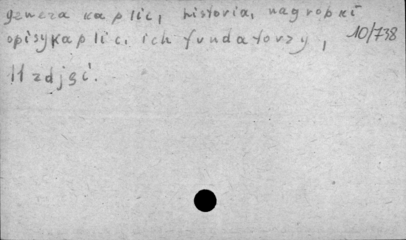 kaplic, historia, nagrobki
opisy kaplic, ich fundatorzy, 10/738
11 zdjęć.